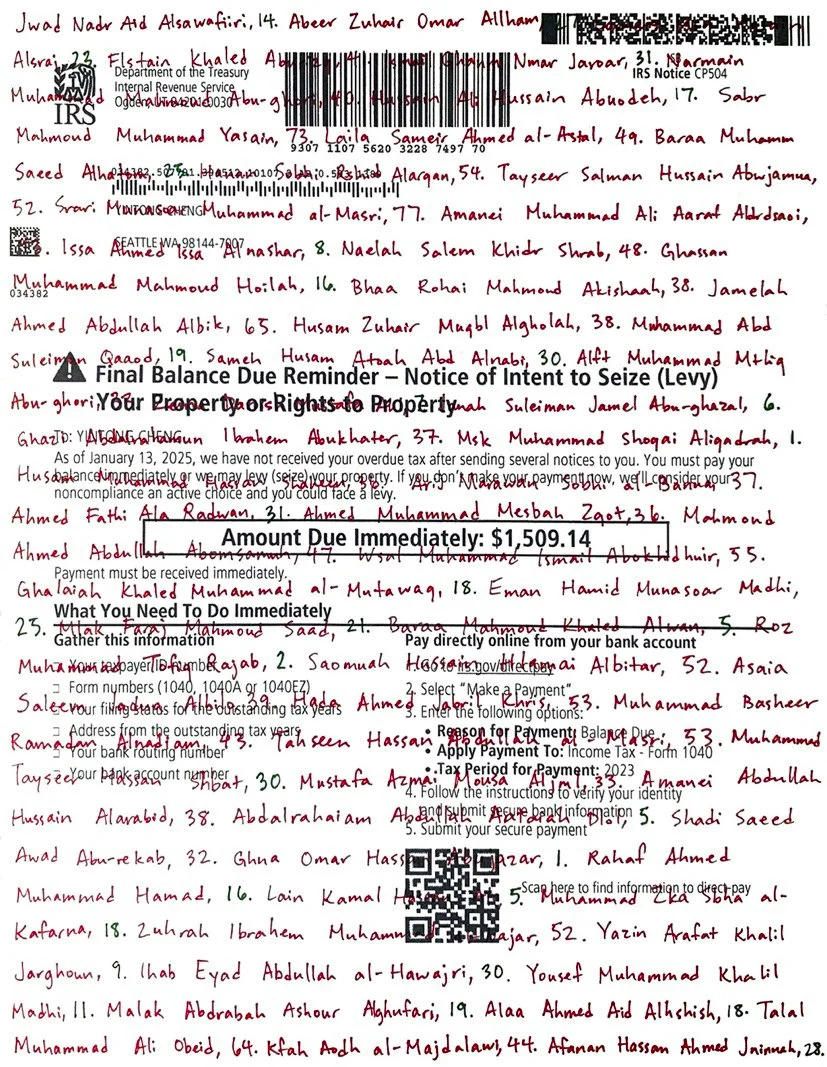 Jwad Nadr Aid Alsawafiiri, 14. Abeer Zuhair Omar Allham,
Alsraj, 23. Elstain Khaled Nmar Jaroar, 31. Narmain
IRS
Department of the Treasury
Internal Revenue Service
Ogden, UT 84201-0030
IRS Notice CP504
Muhammad Mahmoud Abu-ghori, 40. Hussain Ali Hussain Abuodeh, 17. Sabr
Mahmoud Muhammad Yasain, 73. Laila Sameir Ahmed al-Astal, 49. Baraa Muhamm
9307 1107 5620 3228 7497 70
Saeed Alargan, 54. Tayseer Salman Hussain Abwjamua,
52. Muhammad al-Masri, 77. Amanei Muhammad Ali Aaraf Aldrdsaoi,
YINTONG CHENG
Issa Ahmed Issa Alnashar, 8. Naelah Salem Khidr Shrab, 48. Ghassan
SEATTLE WA 98144-7007
Muhammad Mahmoud Hoilah, 16. Bhaa Rohai Mahmoud Akishaah, 38. Jamelah
034382
Ahmed Abdullah Albik, 65. Husam Zuhair Muqbl Algholah, 38. Muhammad Abd
Suleiman Qaaod, 19. Sameh Husam Atoah Abd Alnabi, 30. Alft Muhammad Mtliq
Final Balance Due Reminder – Notice of Intent to Seize (Levy)
Your Property or Rights to Property
Abu-ghori, Suleiman Jamel Abu-ghazal, 6.
Ghazl Abdalrahamun Ibrahem Abukhater, 37. Msk Muhammad Shoqai Aliqadrah, 1.
TO: YINTONG CHENG
As of January 13, 2025, we have not received your overdue tax after sending several notices to you. You must pay your
balance immediately or we may levy (seize) your property. If you don't make your payment now, we'll consider your
noncompliance an active choice and you could face a levy.
Husam Muhammad Hassan Shaheen, 36. Arij Narawan Sobhi al-Banna, 37.
Ahmed Fathi Ala Radwan, 31. Ahmed Muhammad Mesbah Zqot, 36. Mahmoud
Amount Due Immediately: $1,509.14
Ahmed Abdullah Abomsamuh, 47. Wsal Muhammad Ismail Abokhdhuir, 55.
Payment must be received immediately.
Ghalaiah Khaled Muhammad al-Mutawaq, 18. Eman Hamid Munasoar Madhi,
What You Need To Do Immediately
25. Mlak Faraj Mahmoud Saad, 21. Baraa Mahmoud Khaled Alwan, 5. Roz
Gather this information
Your taxpayer ID number
Form numbers (1040, 1040A or 1040EZ)
Your filing status for the outstanding tax years
Address from the outstanding tax years
Your bank routing number
Your bank account number
Pay directly online from your bank account
1. Go to irs.gov/directpay
2. Select “Make a Payment”
3. Enter the following options:
• Reason for Payment: Balance Due
• Apply Payment To: Income Tax - Form 1040
• Tax Period for Payment: 2023
4. Follow the instructions to verify your identity
and submit secure bank information
5. Submit your secure payment
Muhammad Tofiq Rajab, 2. Saomuah Hossain Hlamai Albitar, 52. Asaia
Saleem Jadua Albilo, 39. Hada Ahmed Jabril Khris, 53. Muhammad Basheer
Ramadan Alnadjam, 43. Tahseen Hassan Abdullah al-Masri, 53. Muhammad
Tayseer Hassan Shbat, 30. Mustafa Azmai Mousa Aljml, 33. Amanei Abdullah
Hussain Alarabid, 38. Abdalrahaiam Abdullah Dlol, 5. Shadi Saeed
Awad Abu-rekab, 32. Ghna Omar Hassan Abujazar, 1. Rahaf Ahmed
Scan here to find information to direct pay
Muhammad Hamad, 16. Lain Kamal 5. Muhammad Zka Sbha al-
Kafarna, 18. Zuhrah Ibrahem Muhammad 52. Yazin Arafat Khalil
Jarghoun, 9. Ihab Eyad Abdullah al-Hawajri, 30. Yousef Muhammad Khalil
Madhi, 11. Malak Abdrabah Ashour Alghufari, 19. Alaa Ahmed Aid Alhshish, 18. Talal
Muhammad Ali Obeid, 64. Kfah Aodh al-Majdalawi, 44. Afanan Hassan Ahmed Jninnah, 28.